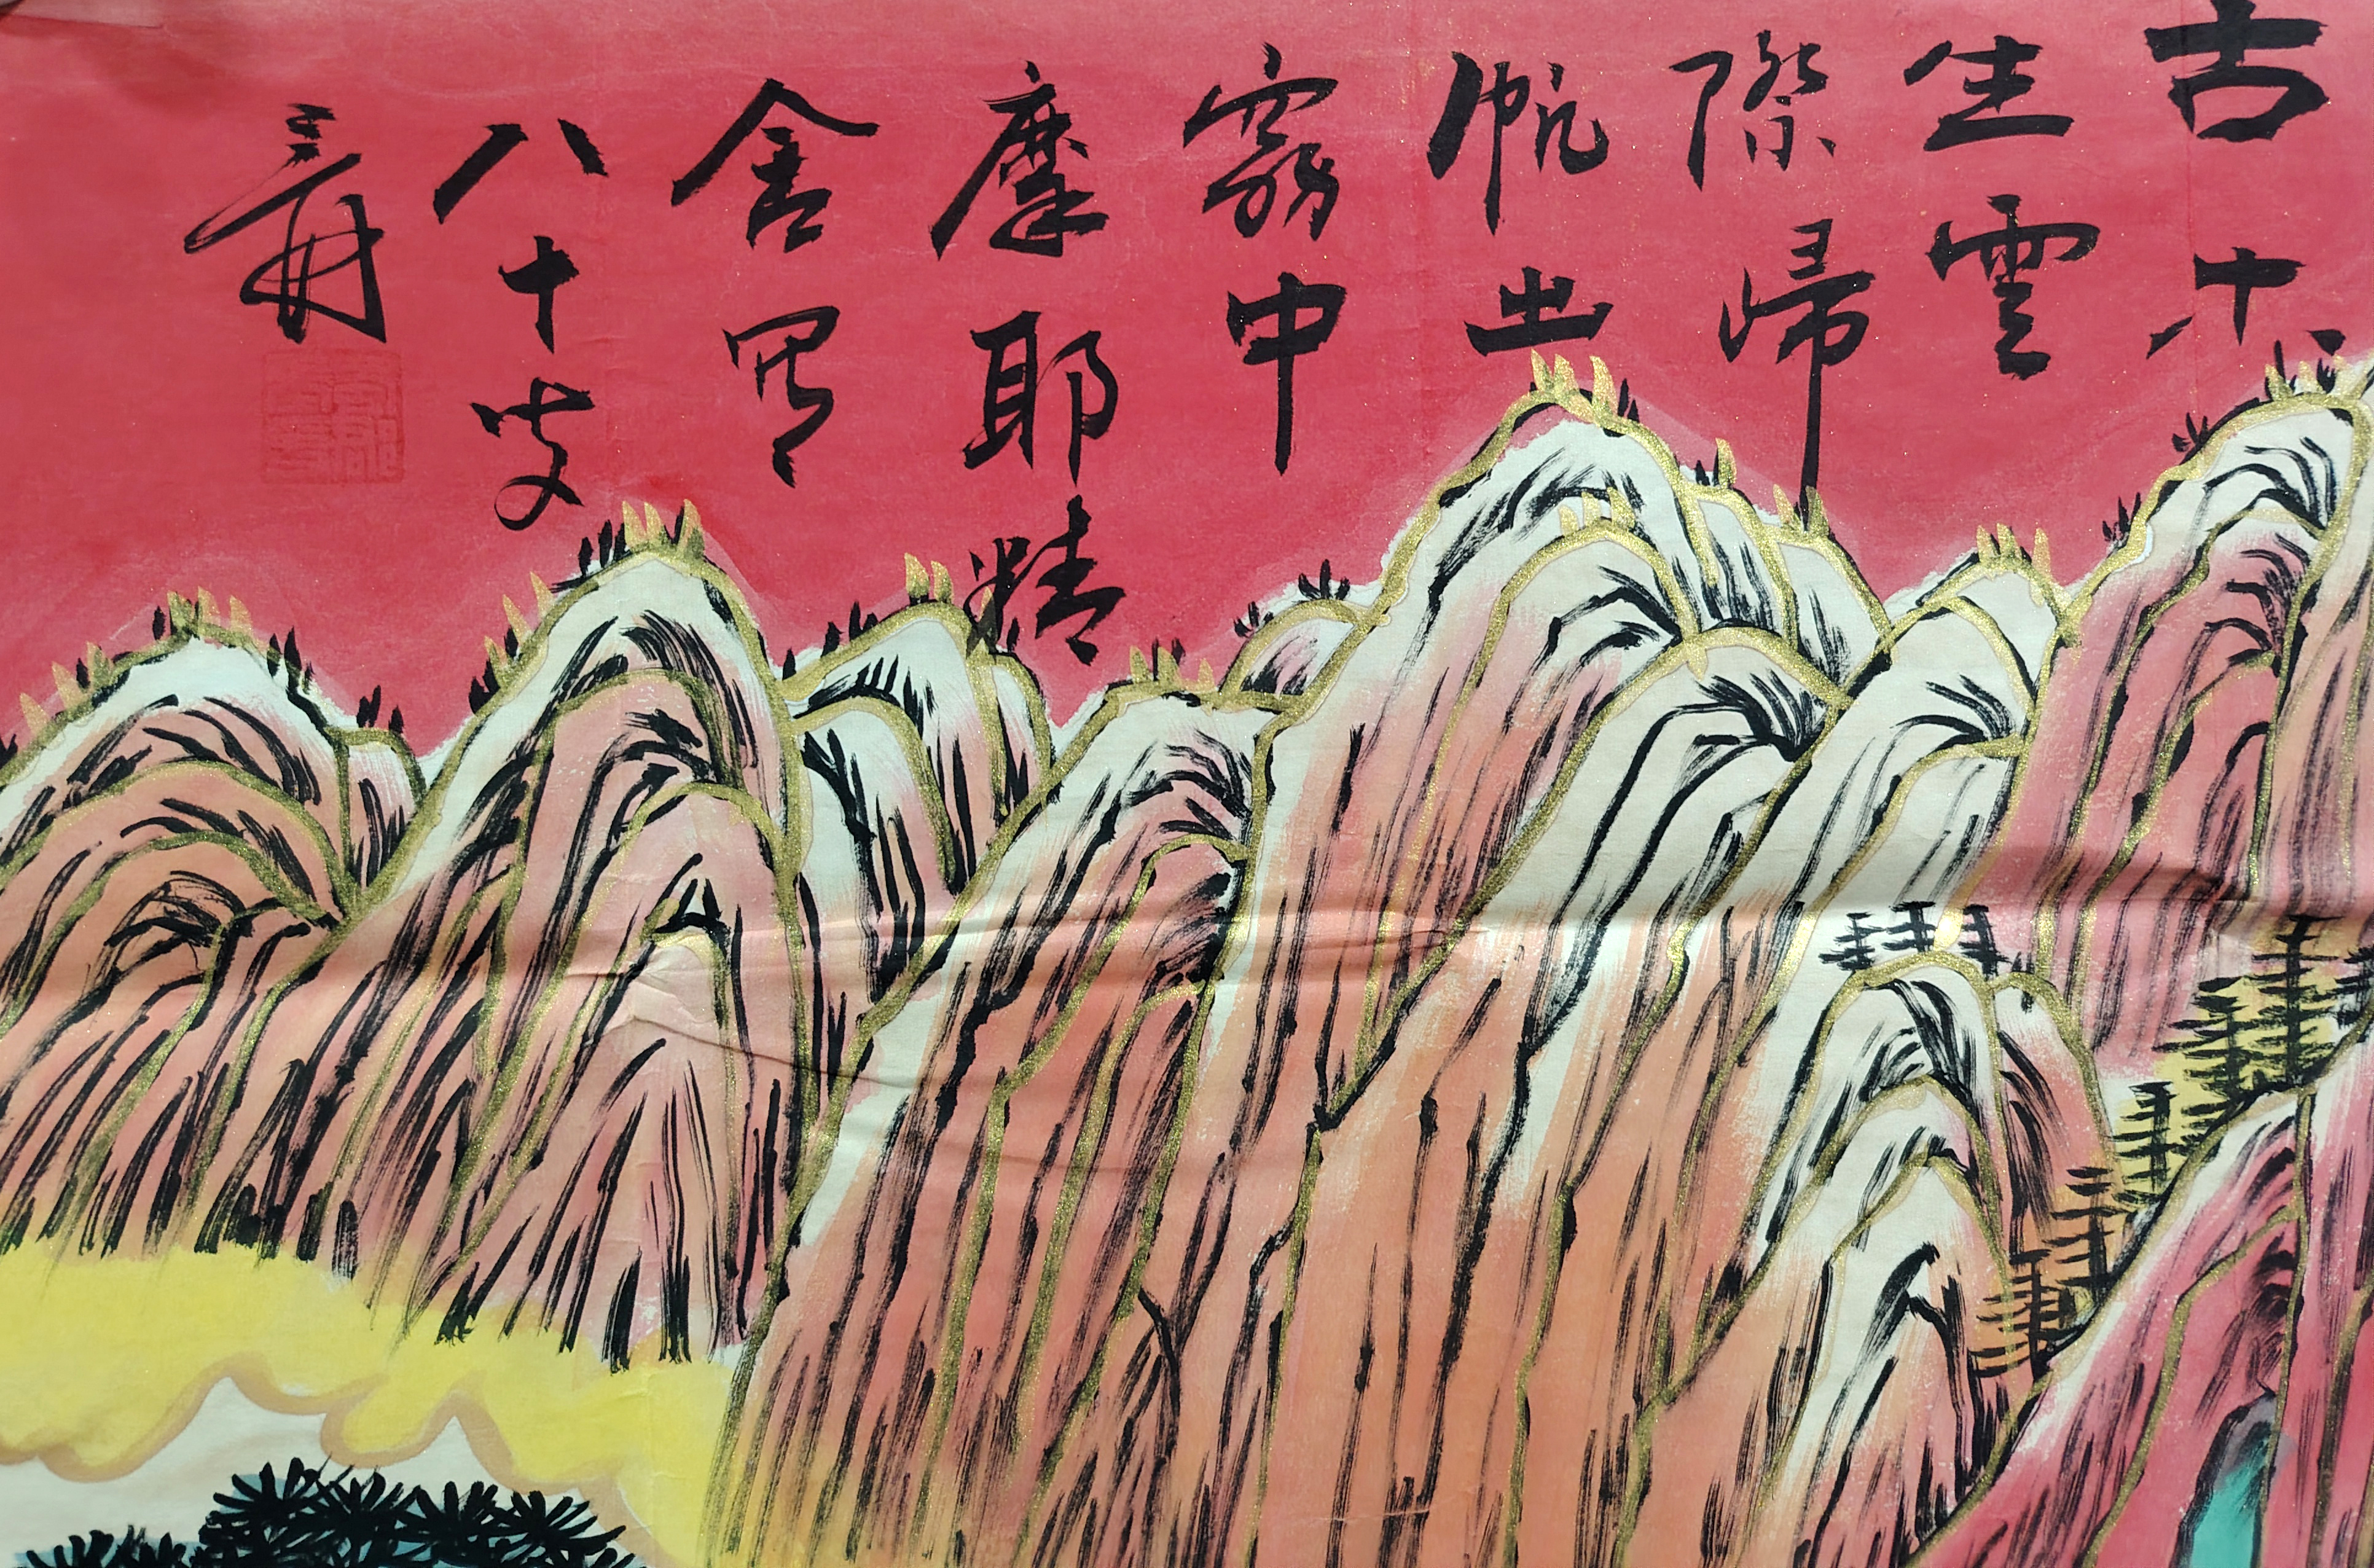 古木
生雲
際歸
帆出
霧中
摩耶精
舍
八十叟